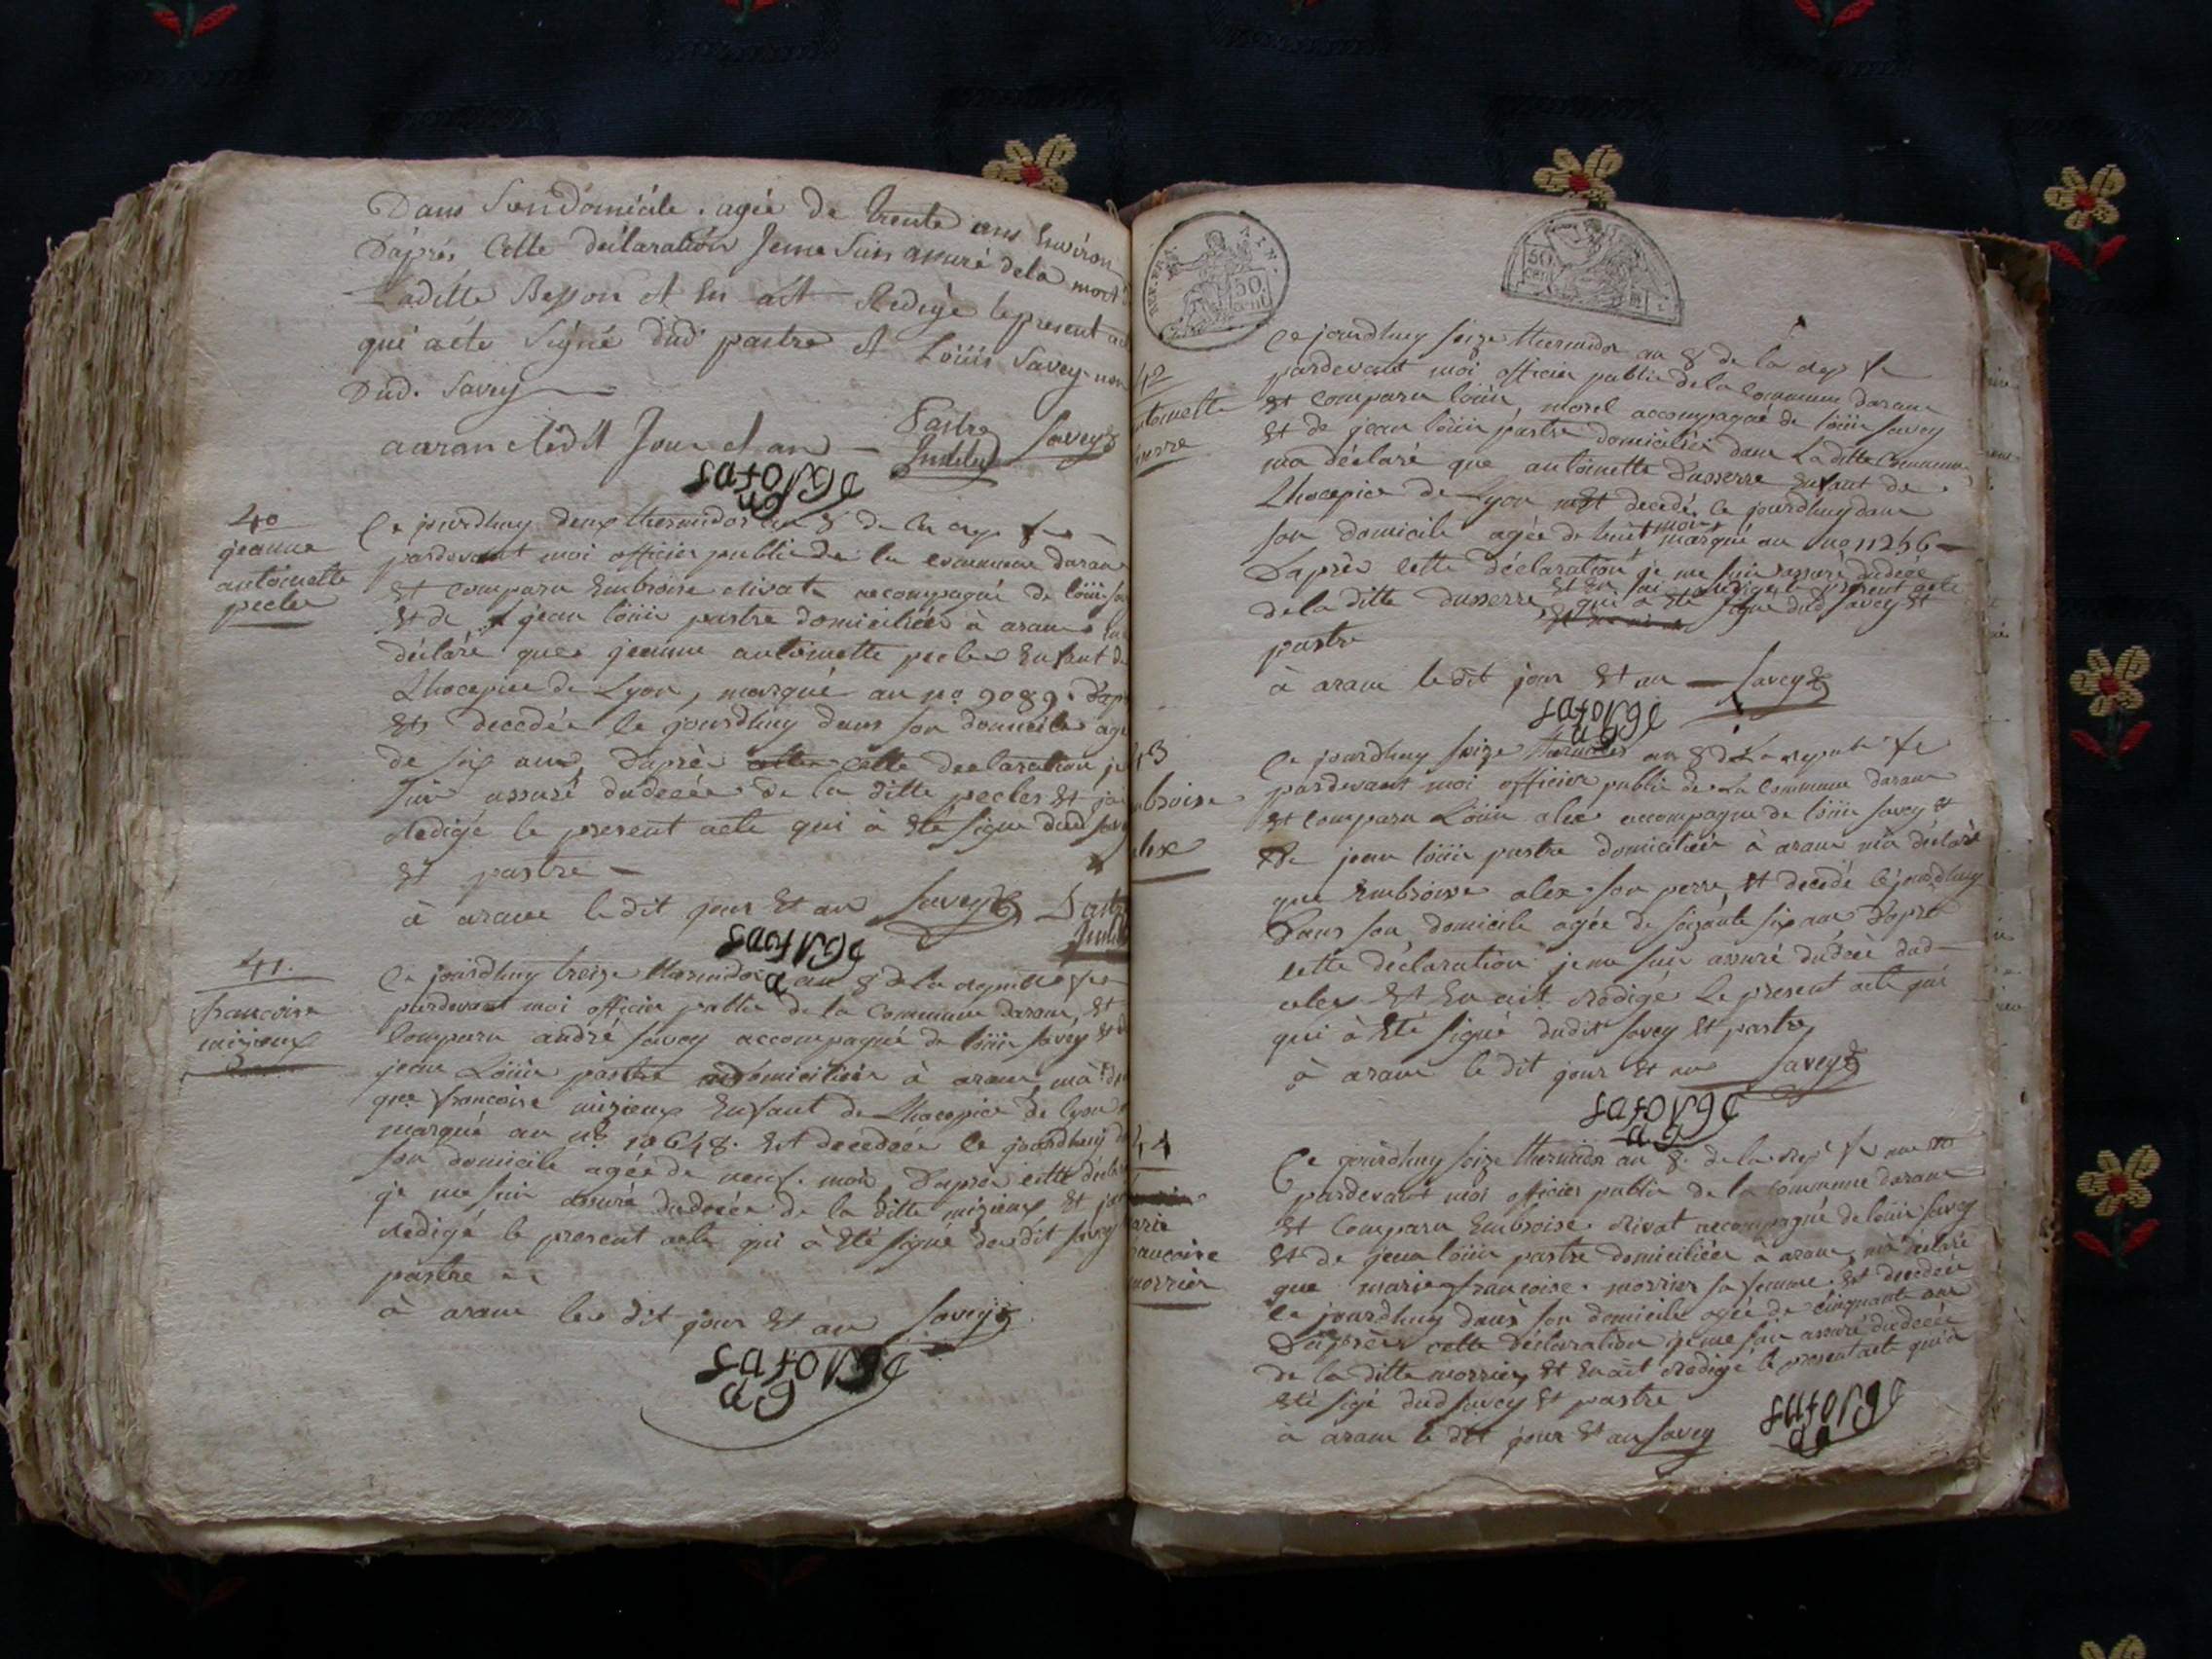 Dans Son Domicile . agée de trente ans Environ
D'après Cette declaration Je me Suis assuré de la mort
Laditte Besson et En ait Redigé le present ac
qui a été Signé dud pastre et Loüis Savey non
Dud. Savey
a aran Ledit Jour et an
Pastre
Savey
40
jeanne
antoinette
pecler
Ce jourdhuy deux thermidor an 8 de la rep fr
pardevant moi officier public de la commune daran
Et comparu Embroise rivat accompagné de loüis sa
Et de jean loüis pastre domiciliés à aran
déclaré que jeanne antoinette pecler Enfant d
Lhocepice de Lyon, marqué au no 9089.
Est decedée le jourdhuy dans son domicile agé
de six ans, Daprès cette declaration je
suis assuré dudecée de la ditte pecler et jai
Redigé le present acte qui à Eté signé dud Sav
Et pastre
à arane le dit jour Et an Savey
41.
francoise
mizieux
Ce jourdhuy treize thermidor an 8 de la repub fr
pardevant moi officier public de la Commune darane, Et
Comparu andré savey accompagné de loüis savey Et d
jean Loüis pastre domiciliés à arane, mà
que francoise mizieux Enfant de Lhocepice de Lyon
marqué au no 10648. Est decedée le jourdhuy d
son domicile agée de neuf mois Daprès cette
je me suis assuré dudecée de la ditte mizieux Et jai
Redigé le present acte qui à Eté signé dudit Savey
pastre
à arane le dit jour Et an Savey
REP. FRA.
50
cent
50
cent
42
ntoinette
sserre
Ce jourdhuy seize thermidor an 8 de la rep fr
pardevant moi officier public de la Commune darane
Et Comparu loüis morel accompagné de loüis savey
Et de jean loüis pastre domiciliés dans Laditte Commune
ma déclaré que antoinette Dusserre Enfant de
Lhocepice de Lyon Est decedé le jourdhuy dans
son domicile agée de huit mois marqué au no 11256
Daprès cette déclaration je me suis assuré dudece
de la ditte dusserre, Et En jai Redigé le present acte
qui à Eté signé dud Savey Et
pastre
à arane le dit jour Et an Savey
43
broise
lex
Ce jourdhuy seize thermidor an 8 d La repub fr
pardevant moi officier public de La Commune darane
Et Comparu Loüis alex accompagné de loüis savey Et
de jean loüis pastre domiciliés à arane mà déclaré
que Embroise alex son perre Et decedé le jourdhuy
Dans son domicile agée de soizante six ans Dapré
cette déclaration je me suis assuré dudécé dud
alex Et En ait Redigé Le present acte qui
qui à Eté signé dudit savey Et pastre
à arane le dit jour Et an Savey
44
arie
rancoise
morrier
Ce jourdhuy seize thermidor an 8. de la rep fr
pardevant moi officier public de la commune darane
Et Comparu Embroise Rivat accompagné de loüis savey
Et de jean loüis pastre domiciliés à arane mà declaré
que marie francoise morrier sa femme Est decedée
le jourdhuy dans son domicile agée de cinquante ans
Daprès cette déclaration je me suis assuré dudecée
de la ditte morrier, Et En ait Redigé le present acte qui à
Eté sigé dud savey Et pastre
à arane le dit jour Et an Savey